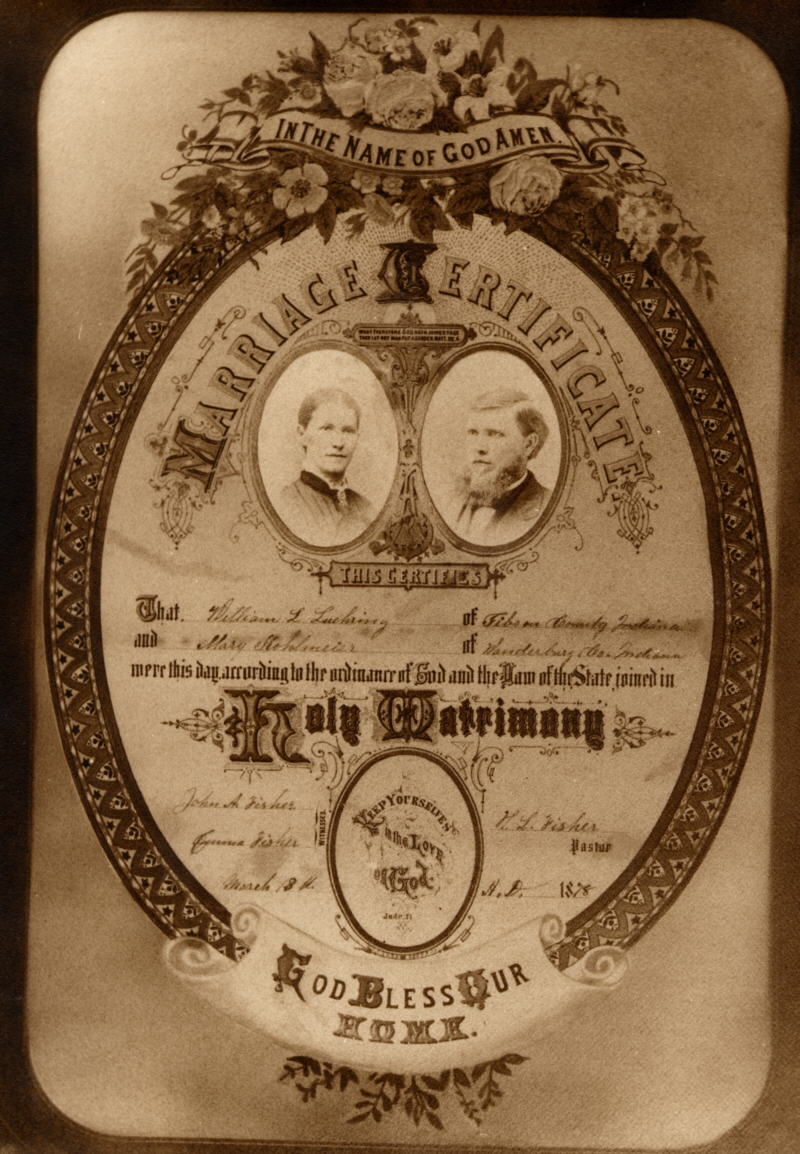 IN THE NAME OF GOD AMEN.
MARRIAGE CERTIFICATE
WHAT THEREFORE GOD HATH JOINED TOGETHER
LET NOT MAN PUT ASUNDER. MATT.
THIS CERTIFIES
That. William L Luehring of Gibson County Indiana
and Mary Kohlmeier of Vanderburg Co. Indiana
were this day, according to the ordinance of God and the Law of the State, joined in
Holy Matrimony
John A Fisher
Emma Fisher
WITNESSES
KEEP YOURSELVES
in the LOVE
of God.
Jude.
H. L. Fisher
Pastor
March 13th
A.D. 1878
GOD BLESS OUR
HOME.